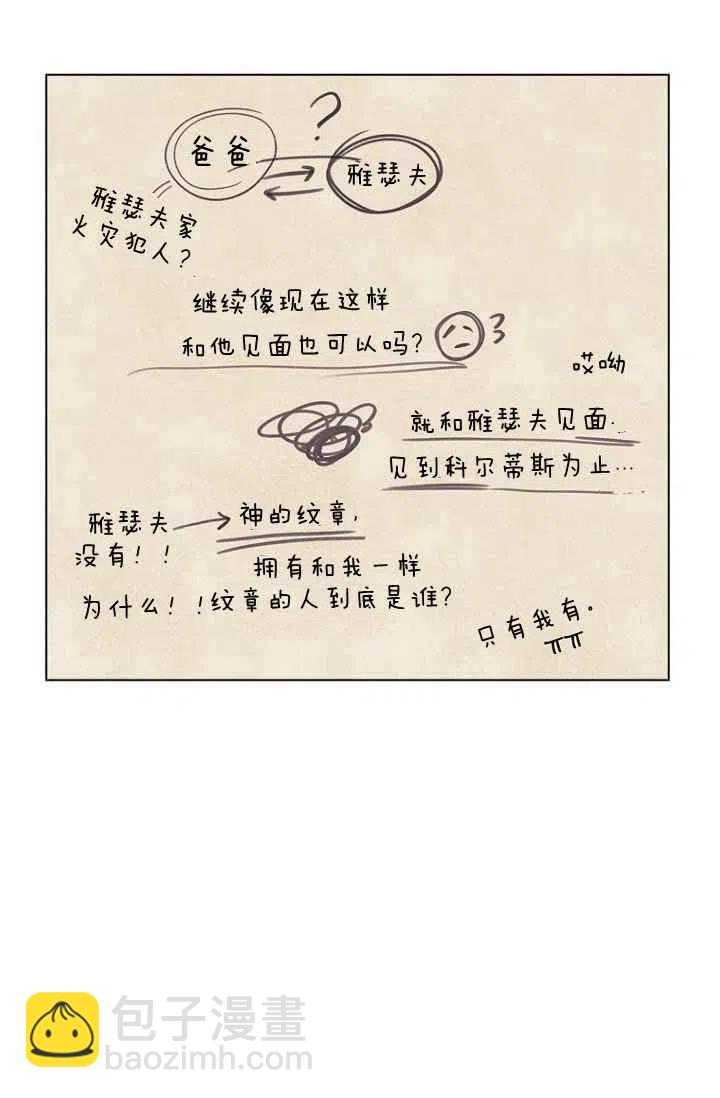 ?
爸爸
雅瑟夫
雅瑟夫家
火灾犯人?
继续像现在这样
和他见面也可以吗?
哎呦
就和雅瑟夫见面..
见到科尔蒂斯为止...
雅瑟夫
没有!!
神的纹章,
拥有和我一样
为什么!!纹章的人到底是谁?
只有我有。
ㅠㅠ
包子漫畫
baozimh.com